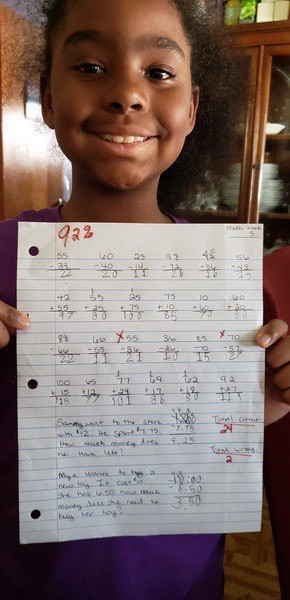 92%
Math week
55 60 25 98 56
-33 -40 -14 -72 -56 -43
22 20 11 26 16 13
42 55 25 75 10 60
+55 +25 +75 +10
97 80 100 85
88 66 x 55 36 85 x 70
-66 -55 -36 -26 -70
22 11 21 10 15 27
100 65 77 69 62 92
+15 +12 +24 +17 +18 +27
115 77 101 86 80 119
Sammy went to the store
with $12. He spent $7.75
How much money does
he have left?
- 7.75
4.25
Total correct
24
Total wrong
2
Mya wants to buy a
new toy. It cost $10
she has 6.50 how much
money does she need to
buy her toy?
10.00
- 6.50
3.50